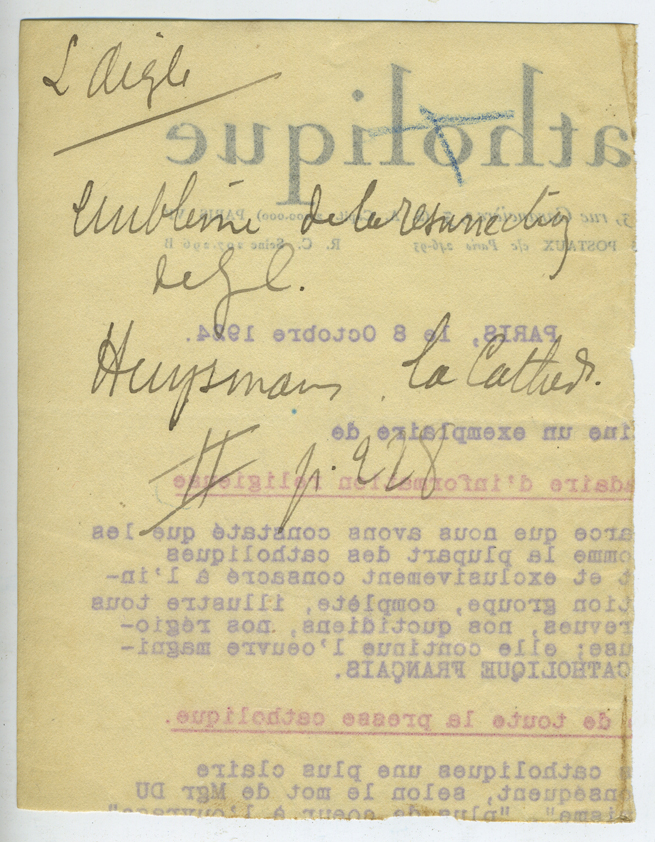 L'Aigle
atholique
Emblème de la resurrection
5, rue
PARIS
POSTAUX c/c Paris 246-93 R. C. Seine 207-296 B
de J. C.
PARIS, le 8 Octobre 1924.
Huysmans. La Cathed.
ine un exemplaire de
II p. 228
adaire d'information religieuse
arce que nous avons constaté que les
omme la plupart des catholiques
t et exclusivement consacré à l'in-
tion groupe, complète, illustre tous
revues, nos quotidiens, nos régio-
use; elle continue l'oeuvre magni-
CATHOLIQUE FRANÇAIS.
de toute la presse catholique.
catholiques une plus claire
onséquent, selon le mot de Mgr DU
isme", "plus de coeur à l'ouvrage"